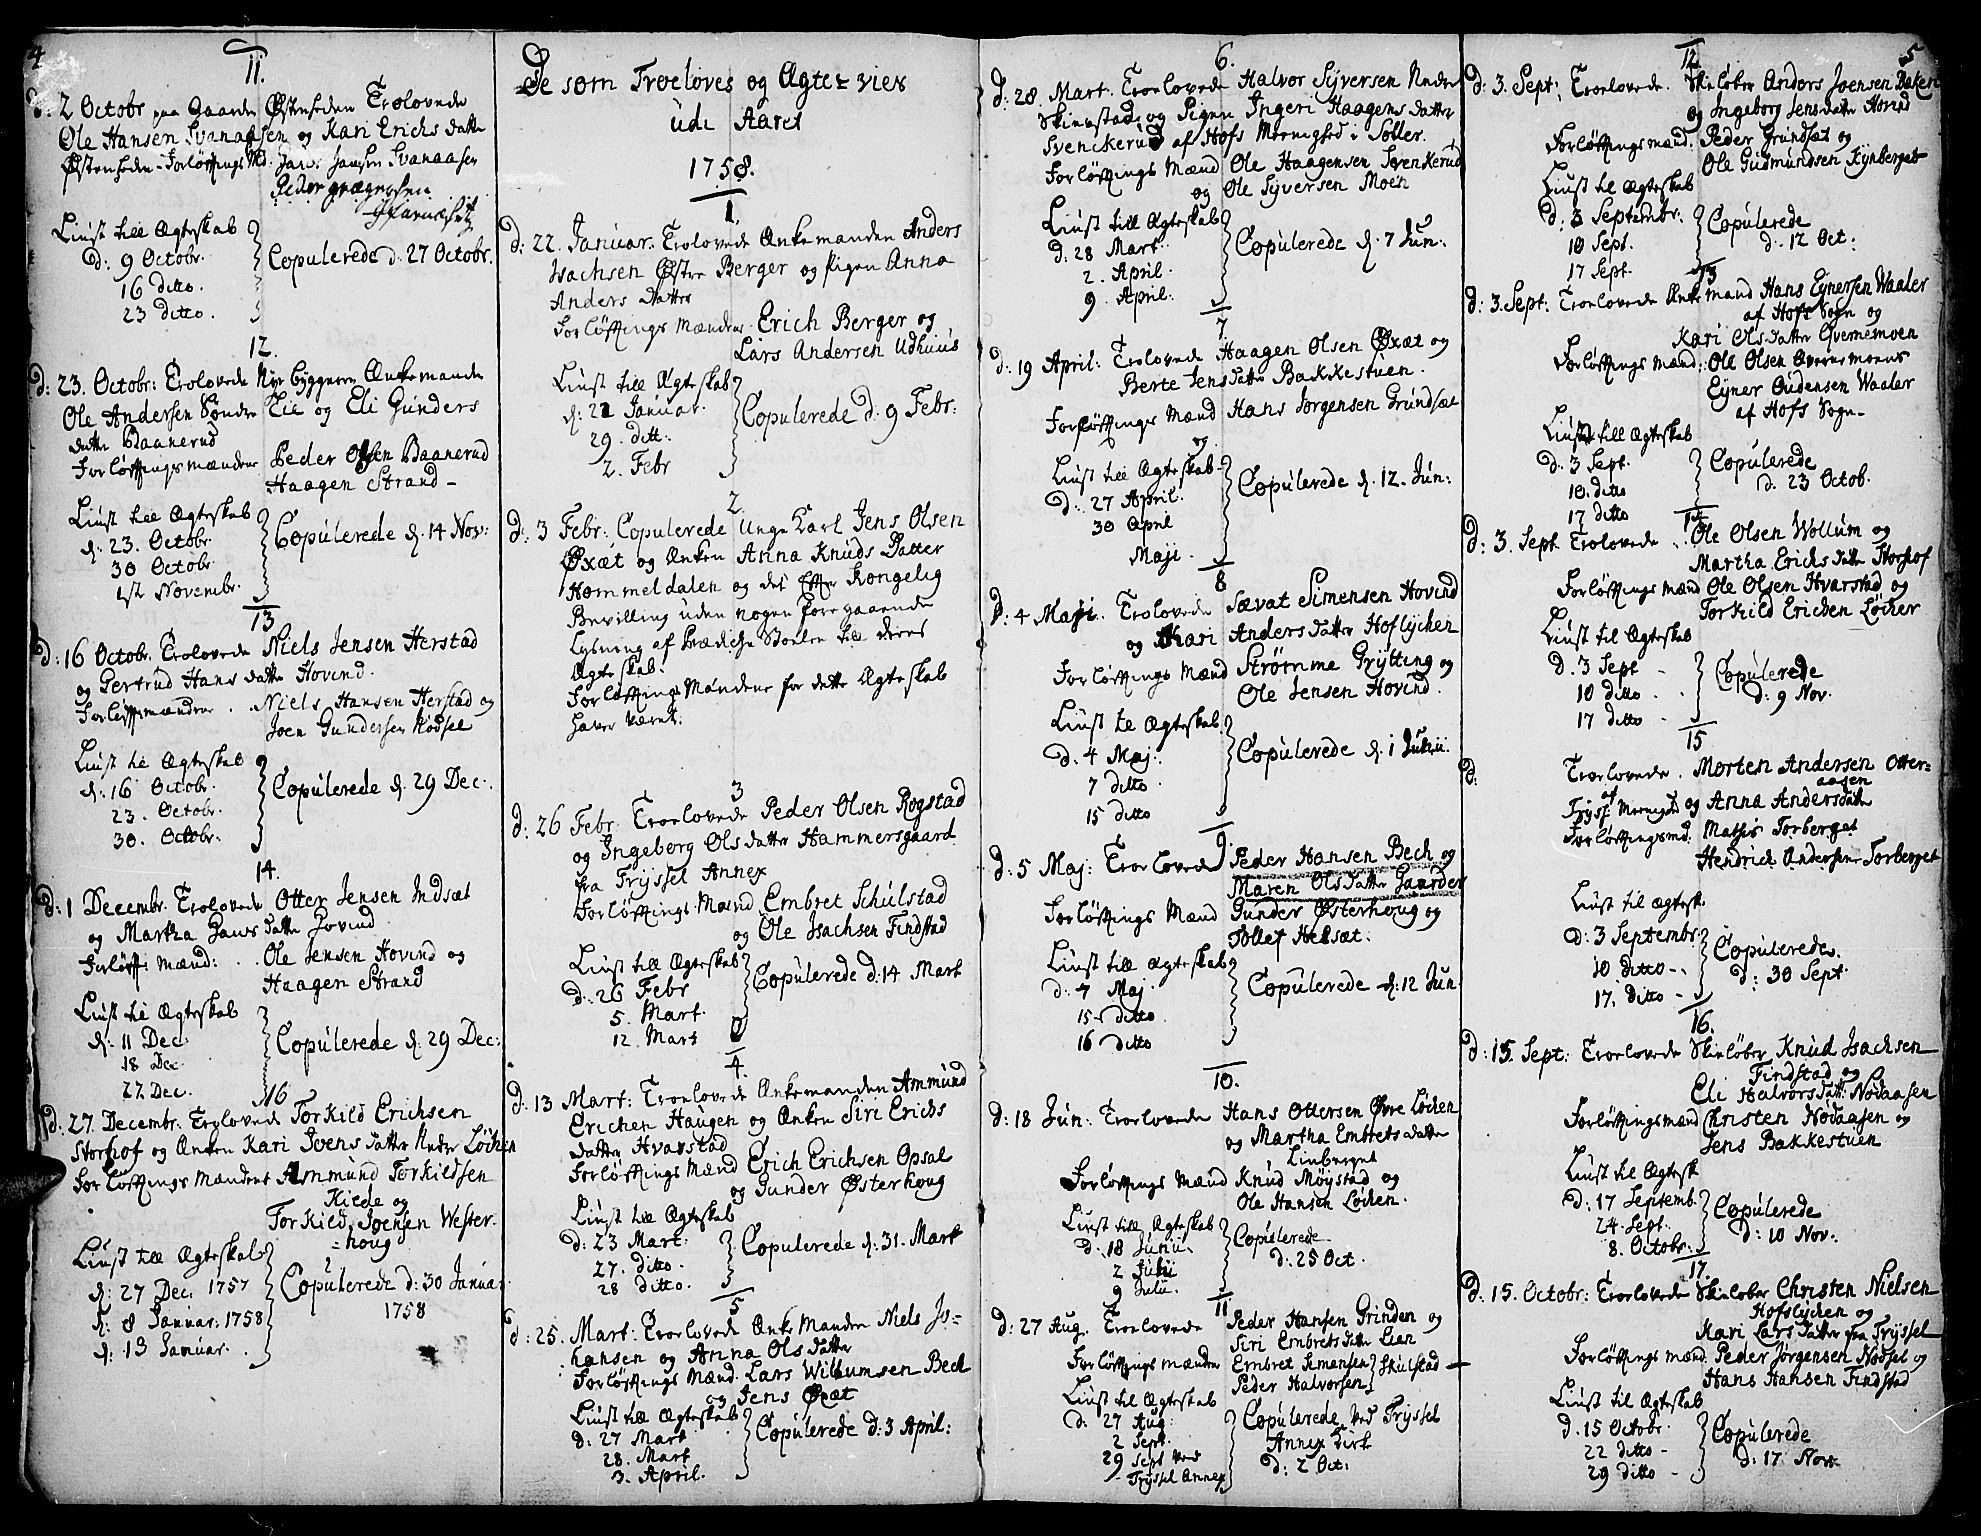 4
11.
d: 2 Octobr paa Gaarden Østenheden Trolovede
Ole Hansen Svanaasen og Kari Erichs datter
Østenheden - Forløftings Md. Jansen Svanaasen
Peder
Liust till Ægteskab
d: 9 Octobr.
16 ditto.
23 ditto.
Copulerede d. 27 Octobr.
12.
d: 23. Octobr: Trolovede Nye byggeren Enkemanden
Ole Andersen Sønder Lie og Eli Gunders
datter Baanerud
Forløftings mændene Peder Olsen Baanerud
Haagen Strand -
Liust till Ægteskab
d. 23. Octobr
30 Octobr
1st Novembr.
Copulerede d. 14 Nov:
13
d: 16 Octobr. Trolovede Niels Jensen Herstad
og Gertrud Hans datter Hovind.
Forløftsmændene . Niels Hansen Herstad og
Joen Gundersen Nødsel
Liust till Ægteskab
d. 16 Octobr.
23. Octobr.
30. Octobr.
Copulerede d. 29 Dec:
14.
d: 1 Decembr. Trolovede Otter Jensen Indsæt
og Martha Hans datter Hovind
Forløft: mænd: . Ole Jensen Hovind og
Haagen Strand
Liust till Ægteskab
d. 11 Dec:
18 Dec
27 Dec.
Copulerede d. 29 Dec:
16
d: 27. Decembr. Trolovede Torkild Erichsen
Storhof og Enken Kari Joens datter Neder Løchen
Forløftings mændene Ammund Torkildsen
Kilde og
Torkild Joensen Wester-
=houg
Liust till Ægteskab
d. 27 Dec. 1757
d. 8 Januar: 1758
d. 13 Januar.
Copulerede d: 30 Januar
1758
De som Troeloves og Ægte=vies
udi Aaret
1758.
1
d: 22. Januar. Trolovede Enkemanden Anders
Isachsen Østre Berger og Pigen Anna
Anders datter
Forløftings mændene Erich Berger og
Lars Andersen Udhuus
Liust till Ægteskab
d. 22 Januar.
29. ditt:
2. Febr
Copulerede d: 9 Febr:
2.
d: 3 Febr: Copulerede Unge Karl Jens Olsen
Øxæt og Enken Anna Knuds Datter
Hommeldalen og det Efter Kongelig
Bevilling uden nogen foregaaende
Lysning af Prædiche Stoelen till deres
Ægteskab.
Forløftings Mændene for dette Ægteskab
haver været:
3
d: 26 Febr: Troelovede Peder Olsen Rogstad
og Ingeborg Ols datter Hammersgaard
fra Tryssel Annex
Forløftings Mænd Embret Schulstad
og Ole Isachsen Findstad
Liust till Ægteskab
d: 26 Febr
5. Mart.
12. Mart
Copulerede d: 14 Mart
4.
d: 13 Mart: Troelovede Enkemanden Ammund
Erichen Haugen og Enken Siri Erichs
datter Hvarstad
Forløftings Mænd Erich Erichsen Opsal
og Gunder Østerhoug
Liust till Ægteskab
d: 23 Mart:
27. ditto.
28 ditto.
Copulerede d. 31. Mart
5
d: 25. Mart: Troelovede Enke Manden Niels Jo=
hansen og Anna Ols datter
Forløftings Mænd. Lars Willumsen Bech
og Jens Øxæt
Liust till Ægteskab
d: 27 Mart
28. Mart
3. April.
Copulerede d: 3 April:
6.
d: 28 Mart. Troelovede Halvor Syversen Neder
Skierstad og Pigen Ingeri Haagens datter
Svenckerud af Hofs Menighed i Soller.
Forløftings Mænd Ole Haagensen Svenkerud
og Ole Syversen Moen
Liust till Ægteskab
d: 28 Mart.
2. April.
9. April:
Copulerede d. 7 Jun:
7.
d: 19 April: Trolovede Haagen Olsen Øxæt og
Berte Jens datter Bakkestuen.
Forløftings Mænd Hans Jørgensen Grundsæt
og
Liust till Ægteskab
d: 27 April.
30 April
Maji.
Copulerede d. 12. Jun:
8
d: 4 Maji. Trolovede Sævat Simensen Hovind
og Kari Anders datter Hoflychen
Forløftings Mænd Strømme Grytting og
Ole Jensen Hovind.
Liust te Ægteskab
d: 4 Maj:
7 ditto
15 ditto
Copulerede d. 1 Julii.
9.
d: 5 Maj: Troelovede Peder Hansen Bech og
Maren Ols datter Gaarder
Forløftings Mænd Gunder Østerhoug og
Tollef Helsæt.
Liust till Ægteskab
d: 7 Maj
15 ditto.
16 ditto
Copulerede d: 12 Jun
10.
d: 18 Jun: Troelovede Hans Ottersen Øvre Løchen
og Martha Embrets datter
Linberget
Forløftings Mænd Knud Møystad og
Ole Hansen Løchen.
Liust till Ægteskab
d: 18 Junii.
2 Julii
9 Julii.
Copulerede
d: 25 Oct.
11
d: 27 Aug. Troelovede Peder Hansen Grinden og
Siri Embrets datter Lien
Forløftings mænden Embret Simensen
Peder Halvorsen Skulstad
Liust til Ægteskab
d: 27 Aug:
2 Sept.
29 Sept ved
Tryssel Annex
Copulerede ved Tryssel
Annex Kirk
d: 2 Oct:
5
12
d: 3. Sept: Troelovede. Skieløber Anders Joensen Bakken
og Ingeborg Jens datter Hovind
Forløftings mænd. Peder Grundsæt og
Ole Gudmundsen Kynberget
Liust til Ægteskab
d: 3 Septembr:
10 Sept.
17 Sept.
Copulerede
d. 12 Oct:
13
d: 3. Sept: Troelovede Enke mand Hans Eynersen Waaler
af Hofs Sogn og
Kari Ols datter Qvernemoen
Forløftings mænd: Ole Olsen Qvernemoen
Eyner Oudensen Waaler
af Hofs Sogn-
Liust till Ægteskab
d: 3 Sept.
10. ditto
17 ditto
Copulerede
d. 23 Octob.
14
d: 3. Sept Troelovede . Ole Olsen Wollum og
Martha Erichs datter Storhof
Forløftings mænd Ole Olsen Hvarstad og
Torkild Erichen Løcher
Liust til Ægteskab
d. 3 Sept -
10 ditto.
17 ditto -
Copulerede
d: 9 Nov.
15
d: Troelovede . Morten Andersen Otter=
aasen
af Tryssel Menighed og Anna Andersdatter
Forløftingsmd. Mathis Torberget
Hendrich Andersen Torberget
Liust til Ægtesk.
d: 3 Septembr.
10 ditto -.
17. ditto -
Copulerede.
d: 30 Sept.
16.
d: 15. Sept: Troelovede Skieløber Knud Isachsen
Findstad og
Eli Halvors datt: Nodaasen
Forløftingsmænd Christen Nodaasen og
Jens Bakkestuen
Liust til Ægtesk
d: 17 Septemb.
24. Sept.
8. Octobr:
Copulerede
d: 10 Nov.
17.
d: 15. Octobr: Troelovede Skieløber Christen Nielsen
Hofslychen og
Kari Lars datter fra Tryssel
Forløftings mænd. Peder Jørgensen Nødsel og
Hans Hansen Findstad
Liust til Ægteskab
d: 15 Octobr.
22 ditto -
29 ditto -
Copulerede
d: 17 Nov.